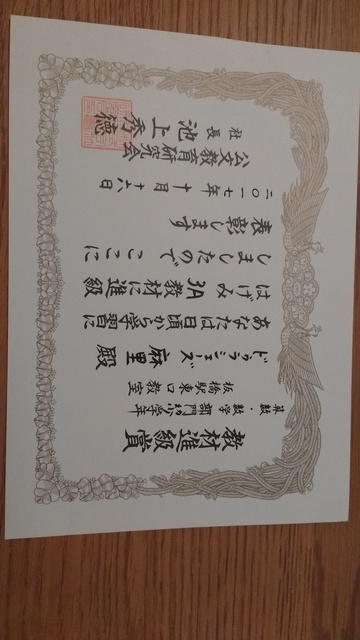 教材進級賞
算数・数学 部門
板橋駅東口教室
麻里 殿
あなたは日頃から学習に
はげみ 3A 教材に進級
しましたので ここに
表彰します
二〇一七年 十月 十六日
公文教育研究会
社長 池上秀徳